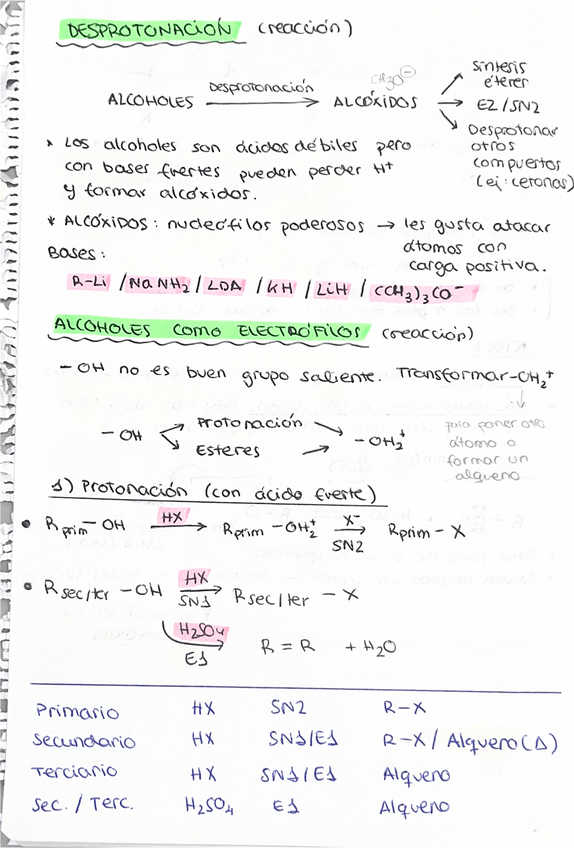 DESPROTONACIÓN (reacción)
ALCOHOLES Desprotonación → ALCÓXIDOS CH3O⊖
síntesis éteres
E2/SN2
Desprotonar otros compuertos (ej: ceronas)
* Los alcoholes son ácidos débiles pero
con bases fuertes pueden perder H+
y formar alcóxidos.
* ALCÓXIDOS: nucleófilos poderosos → les gusta atacar
átomos con
carga positiva.
Bases:
R-Li / NaNH2 / LDA / KH / LiH / (CH3)3CO-
ALCOHOLES COMO ELECTRÓFILOS (reacción)
-OH no es buen grupo saliente. Transformar-OH2+
-OH Protonación → -OH2+
Esteres →
para poner otro
átomo o
formar un
alqueno.
1) Protonación (con ácido fuerte)
• Rprim-OH HX → Rprim-OH2+ X- → SN2 Rprim-X
• Rsec/ter-OH HX → SN1 Rsec/ter-X
H2SO4 → E1 R=R + H2O
Primario HX SN2 R-X
Secundario HX SN1/E1 R-X / Alqueno(Δ)
Terciario HX SN1/E1 Alqueno
Sec./Terc. H2SO4 E1 Alqueno